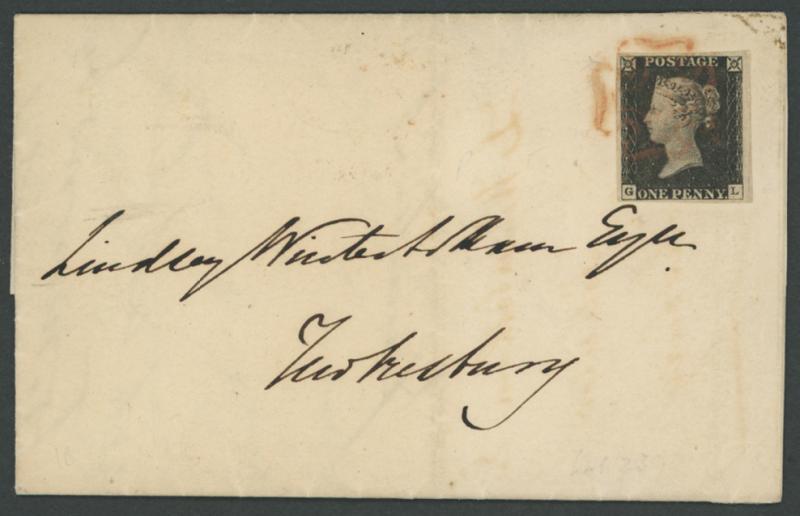 POSTAGE
G ONE PENNY. L
Lindsey Winterbotham Esqre
Tewkesbury